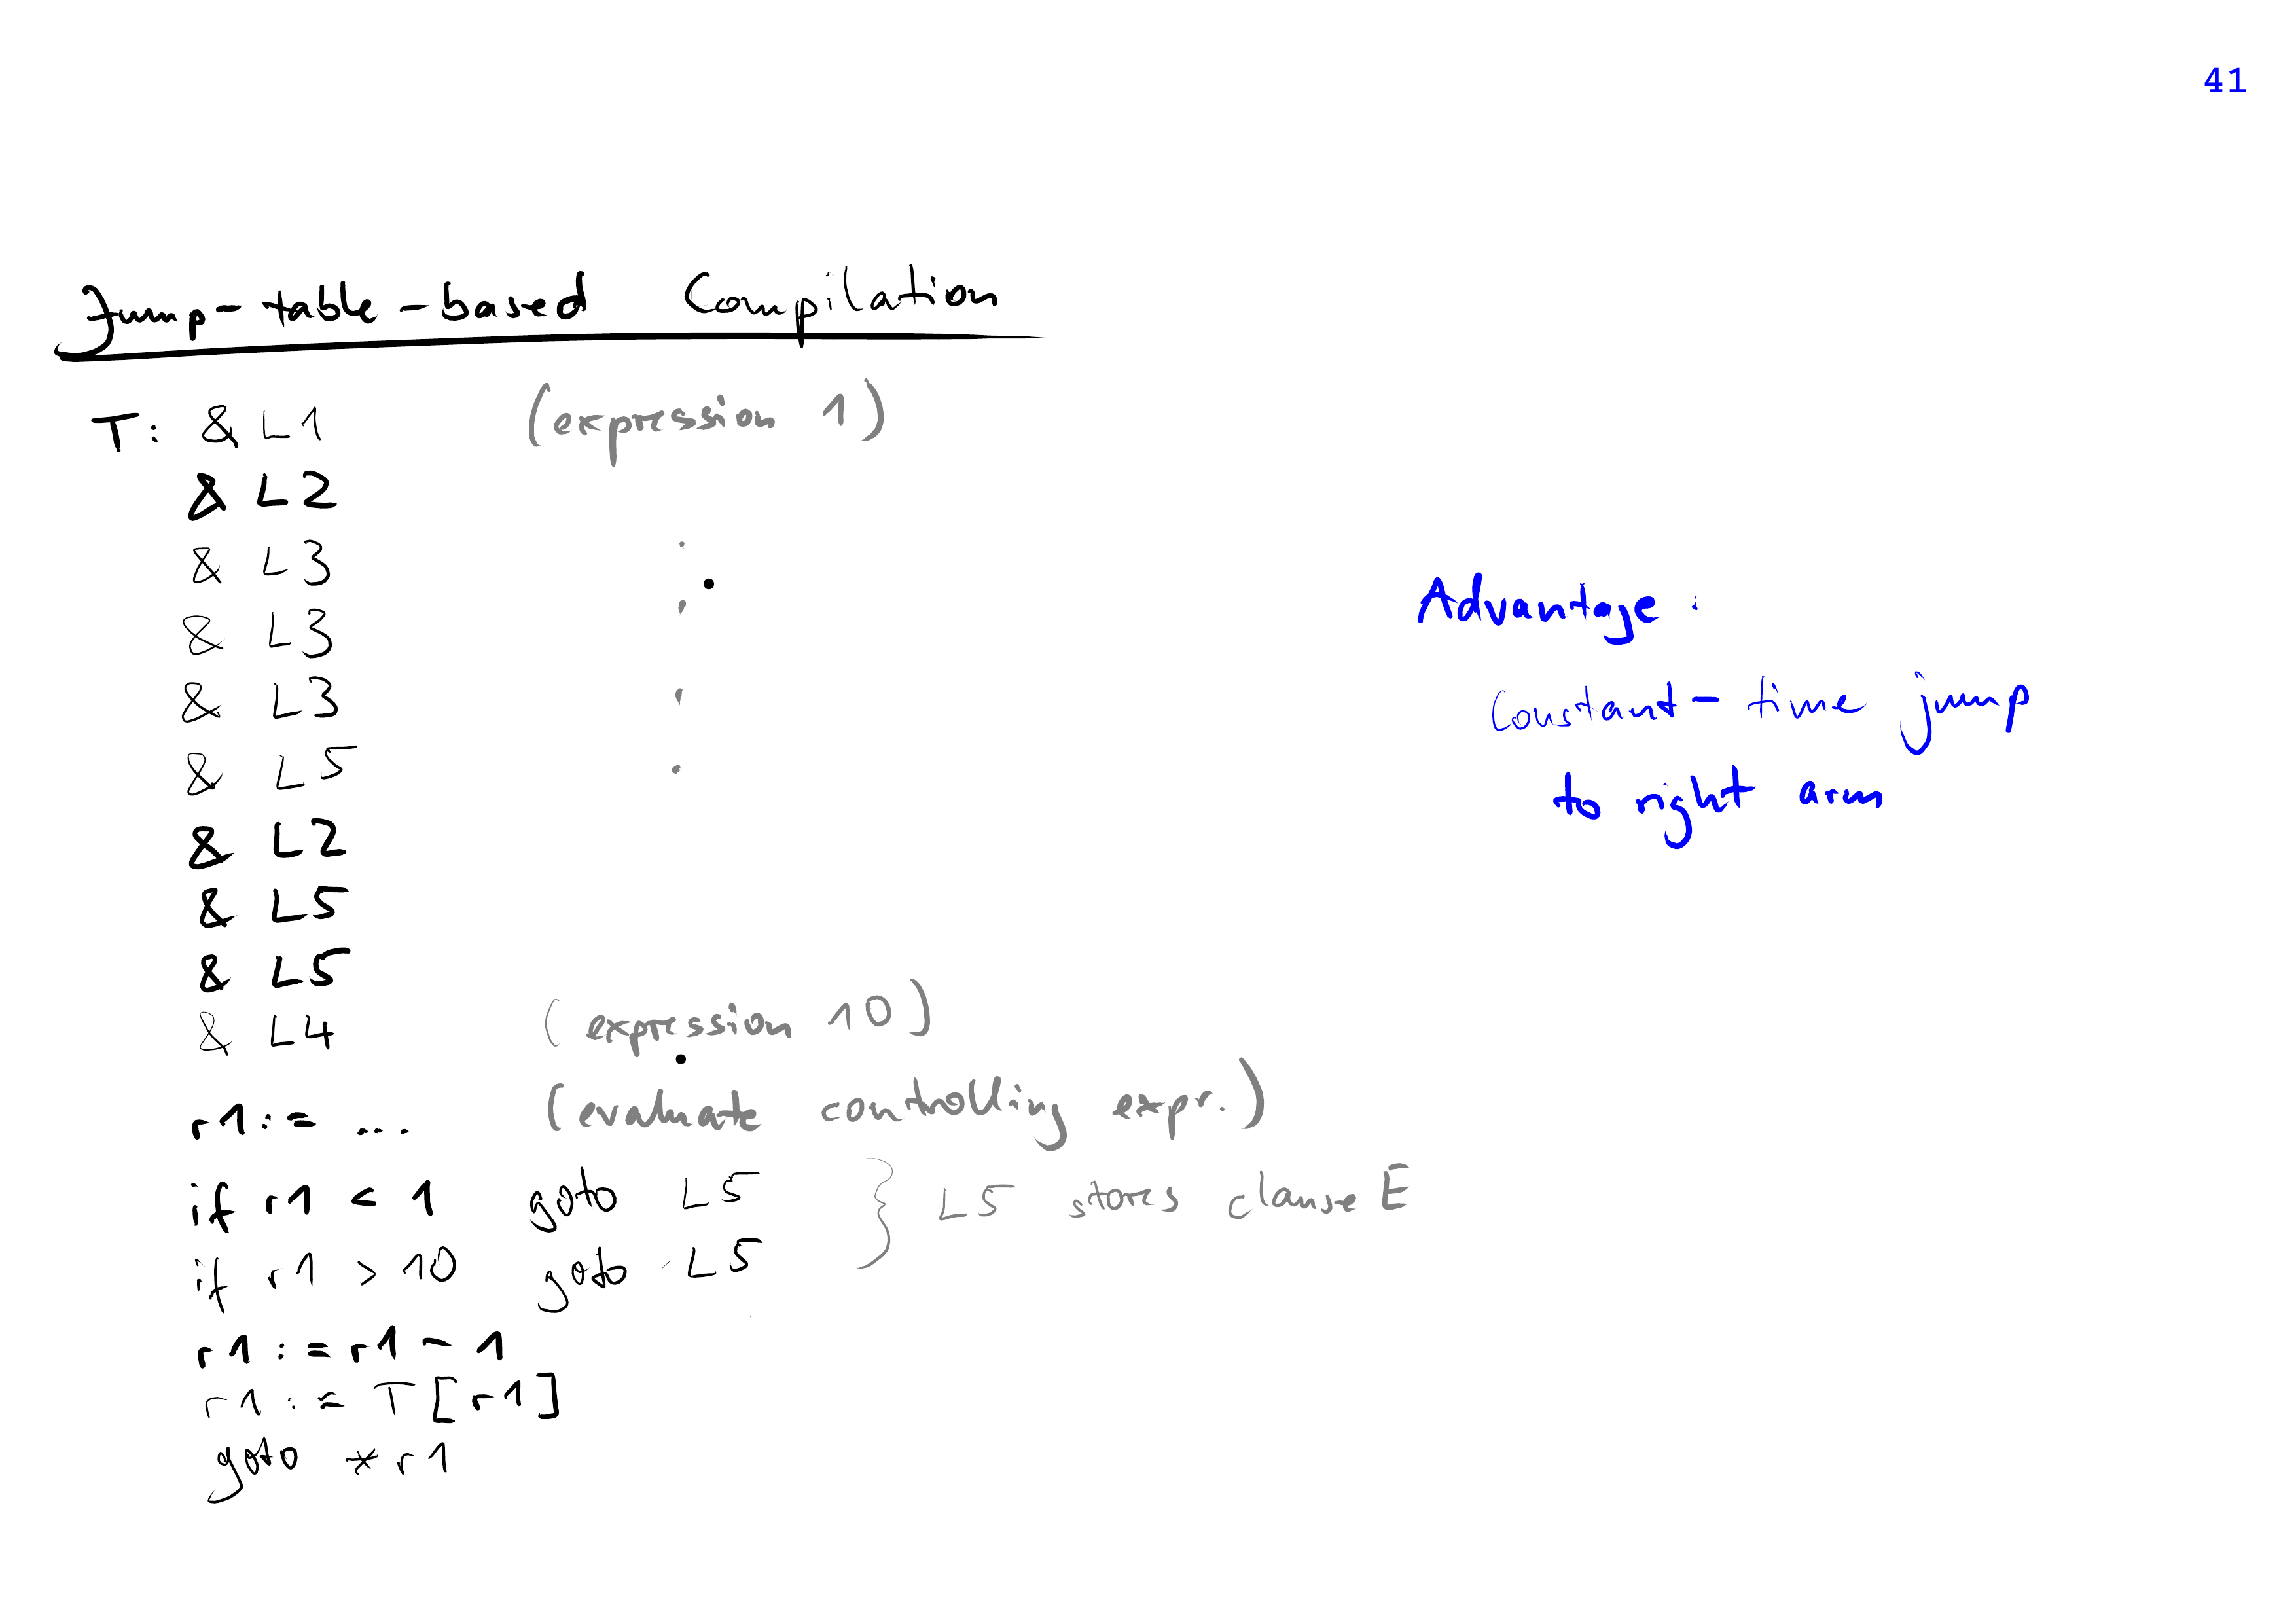 41
Jump-table-based Compilation
T: & L1 (expression 1)
& L2
& L3
& L3
& L3
& L5
& L2
& L5
& L5
& L4 (expression 10)
r1 := ... (evaluate controlling expr.)
if r1 < 1 goto L5
if r1 > 10 goto L5
} L5 stores clause E
r1 := r1 - 1
r1 := T[r1]
goto *r1
Advantage:
Constant-time jump
to right arm